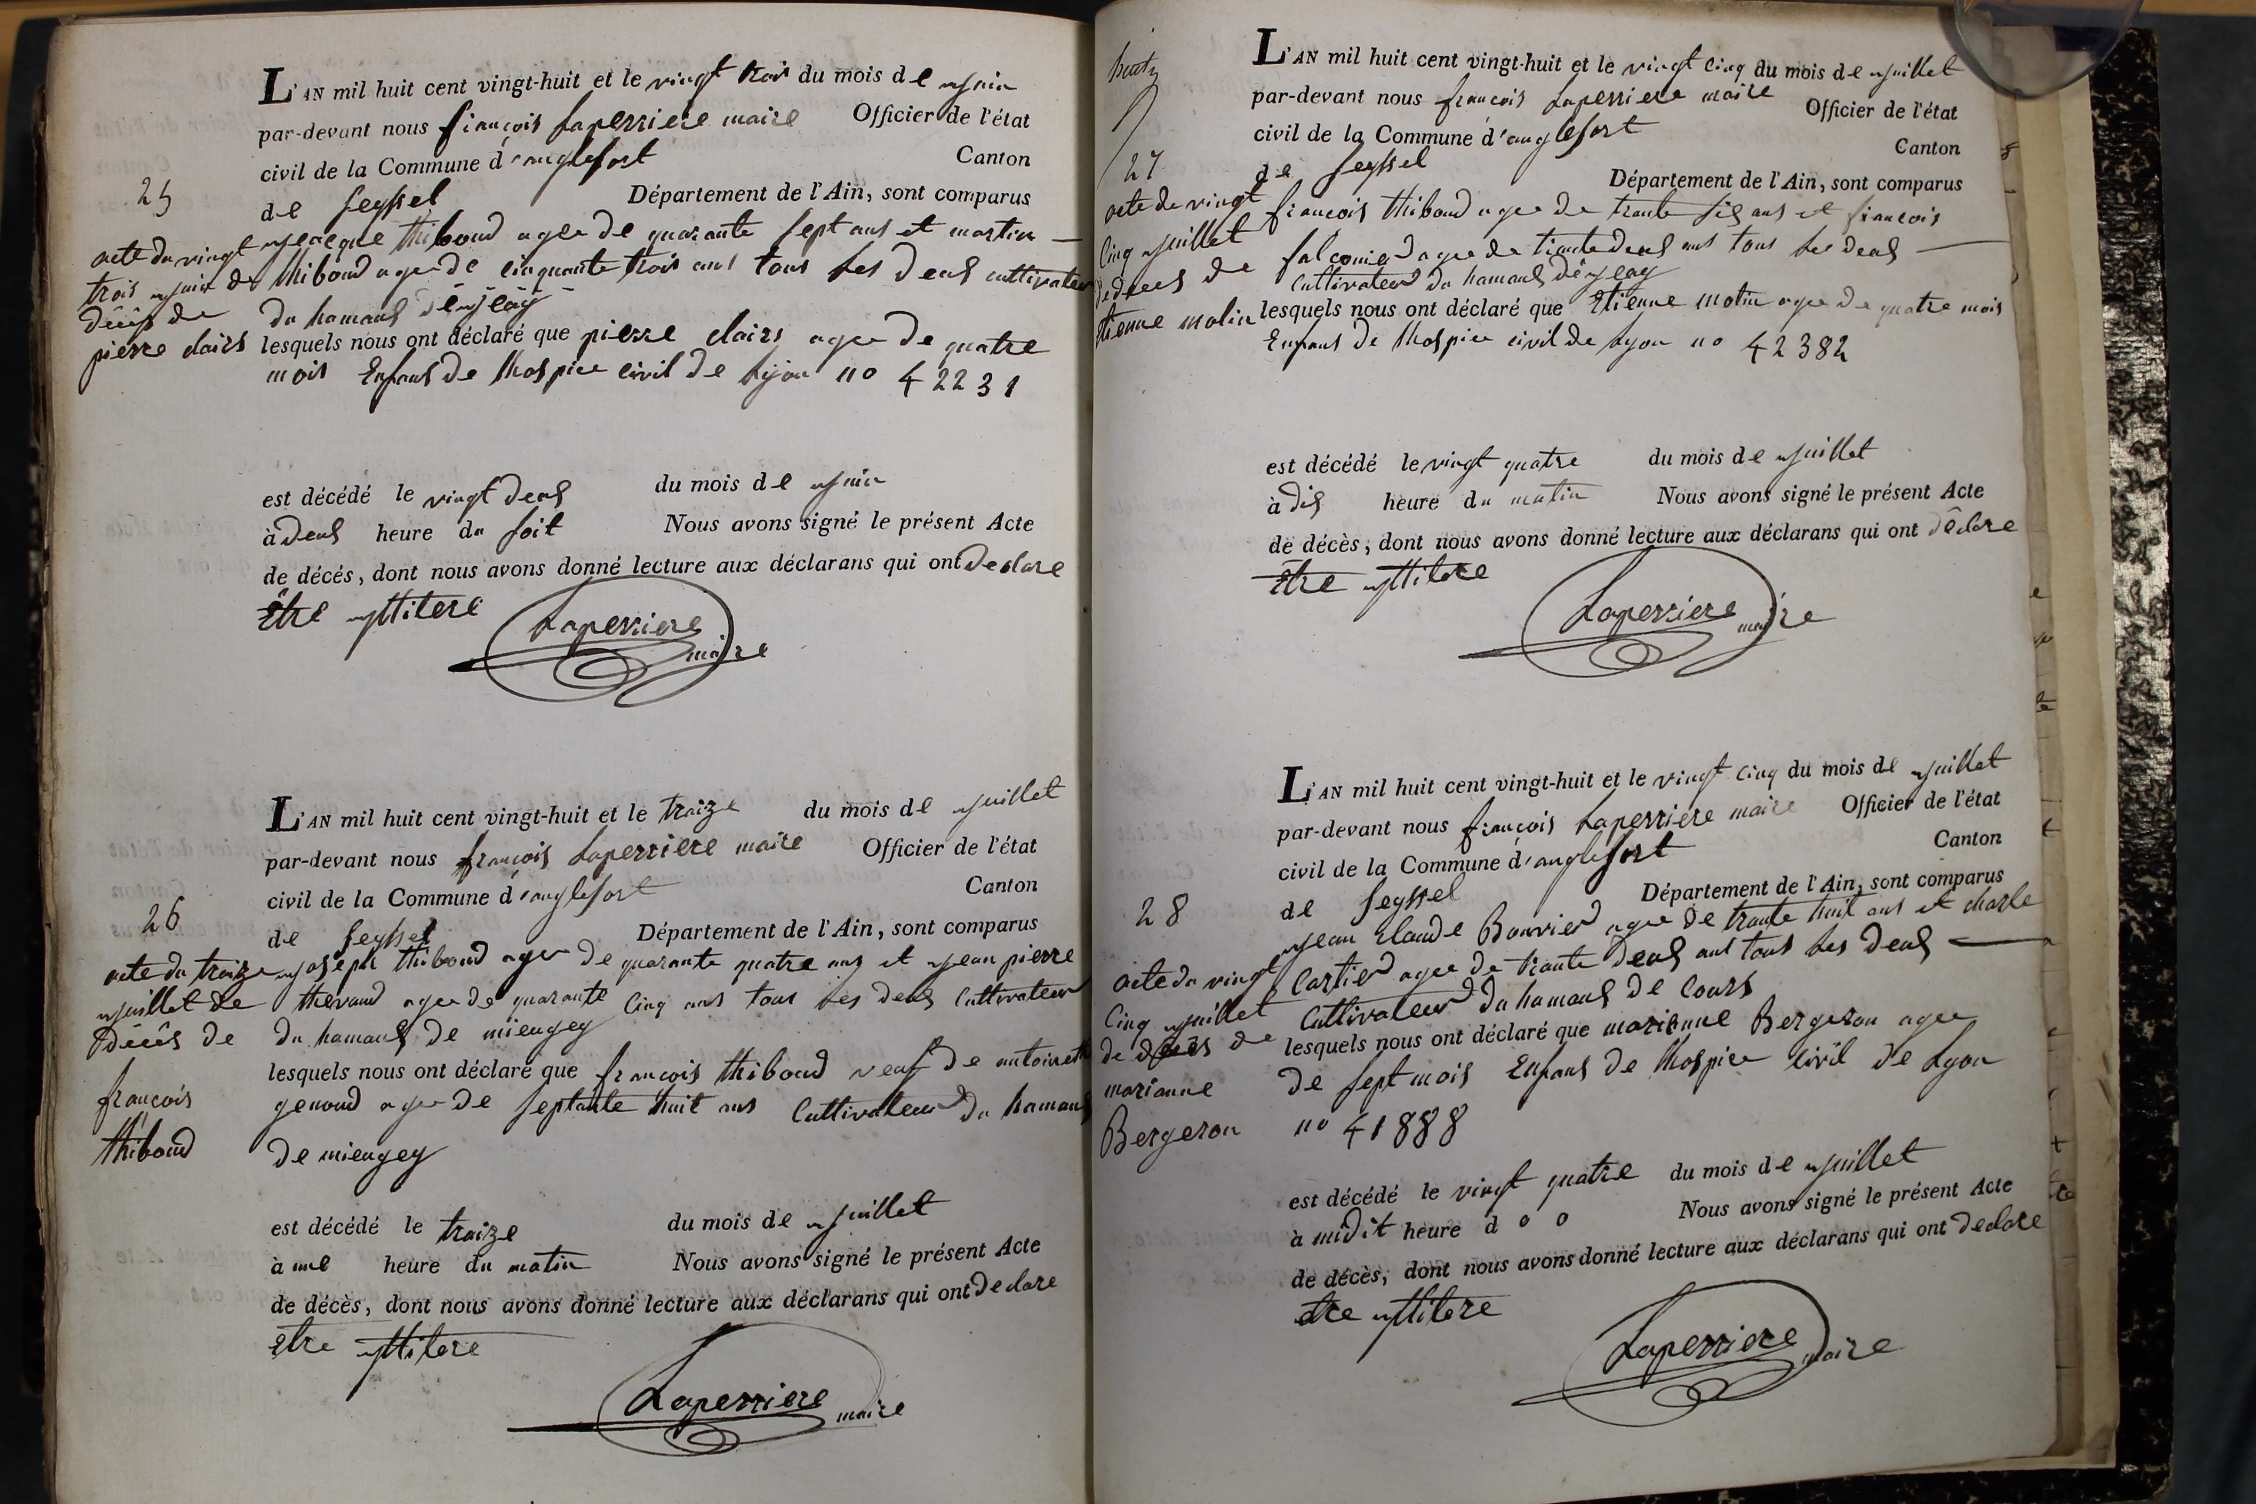 L'AN mil huit cent vingt-huit et le vingt trois du mois de juin
par-devant nous françois Laperriere maire Officier de l'état
civil de la Commune d'anglefort Canton
de Seyssel Département de l'Ain, sont comparus
jeacque thiboud agee de quarante sept ans et martin
thiboud agee de cinquante trois ans tous les deus cultivateur
du hamaus
lesquels nous ont déclaré que pierre clairs agee de quatre
mois Enfans de lhospice civil de Lyon no 42231
est décédé le vingt deus du mois de juin
à deus heure du soit Nous avons signé le présent Acte
de décés, dont nous avons donné lecture aux déclarans qui ont declare
être yllitere
Laperriere
maire
25
acte du vingt
trois juin de
décès de
pierre clairs
L'AN mil huit cent vingt-huit et le traize du mois de juillet
par-devant nous françois Laperriere maire Officier de l'état
civil de la Commune d'anglefort Canton
de Seyssel Département de l'Ain, sont comparus
joseph thiboud agee de quarante quatre ans et jean pierre
thevand agee de quarante cinq ans tous les deus Cultivateur
du hamaus de miengey
lesquels nous ont déclaré que françois thiboud veuf de antoinette
genoud agee de septante huit ans Cultivateur du hamaus
de miengey
est décédé le traize du mois de juillet
à une heure du matin Nous avons signé le présent Acte
de décès, dont nous avons donné lecture aux déclarans qui ont declare
etre yllitere
Laperriere
maire
26
acte du traize
juillet de
décès de
françois
thiboud
L'AN mil huit cent vingt-huit et le vingt cinq du mois de juillet
par-devant nous françois Laperriere maire Officier de l'état
civil de la Commune d'anglefort Canton
de Seyssel Département de l'Ain, sont comparus
françois thiboud agee de trante sis ans et françois
falconied agee de trante deus ans tous les deus
Cultivateur du hamaus
lesquels nous ont déclaré que Etienne molin agee de quatre mois
Enfans de lhospice civil de Lyon no 42382
est décédé le vingt quatre du mois de juillet
à dis heure du matin Nous avons signé le présent Acte
de décès, dont nous avons donné lecture aux déclarans qui ont déclare
Etre yllitere
Laperriere
maire
27
acte du vingt
cinq juillet
de deces de
Etienne molin
L'AN mil huit cent vingt-huit et le vingt cinq du mois de juillet
par-devant nous françois Laperriere maire Officier de l'état
civil de la Commune d'anglefort Canton
de Seyssel Département de l'Ain, sont comparus
jean claude Bouvier agee de trante huit ans et charle
Cartier agee de trante deus ans tous les deus
Cultivateur du hamaus de Cours
lesquels nous ont déclaré que marianne Bergeron agee
de sept mois Enfans de lhospice civil de Lyon
no 41888
est décédé le vingt quatre du mois de juillet
à midit heure d o o Nous avons signé le présent Acte
de décès, dont nous avons donné lecture aux déclarans qui ont declare
etre yllitere
Laperriere
maire
28
acte du vingt
cinq juillet
de deces de
marianne
Bergeron